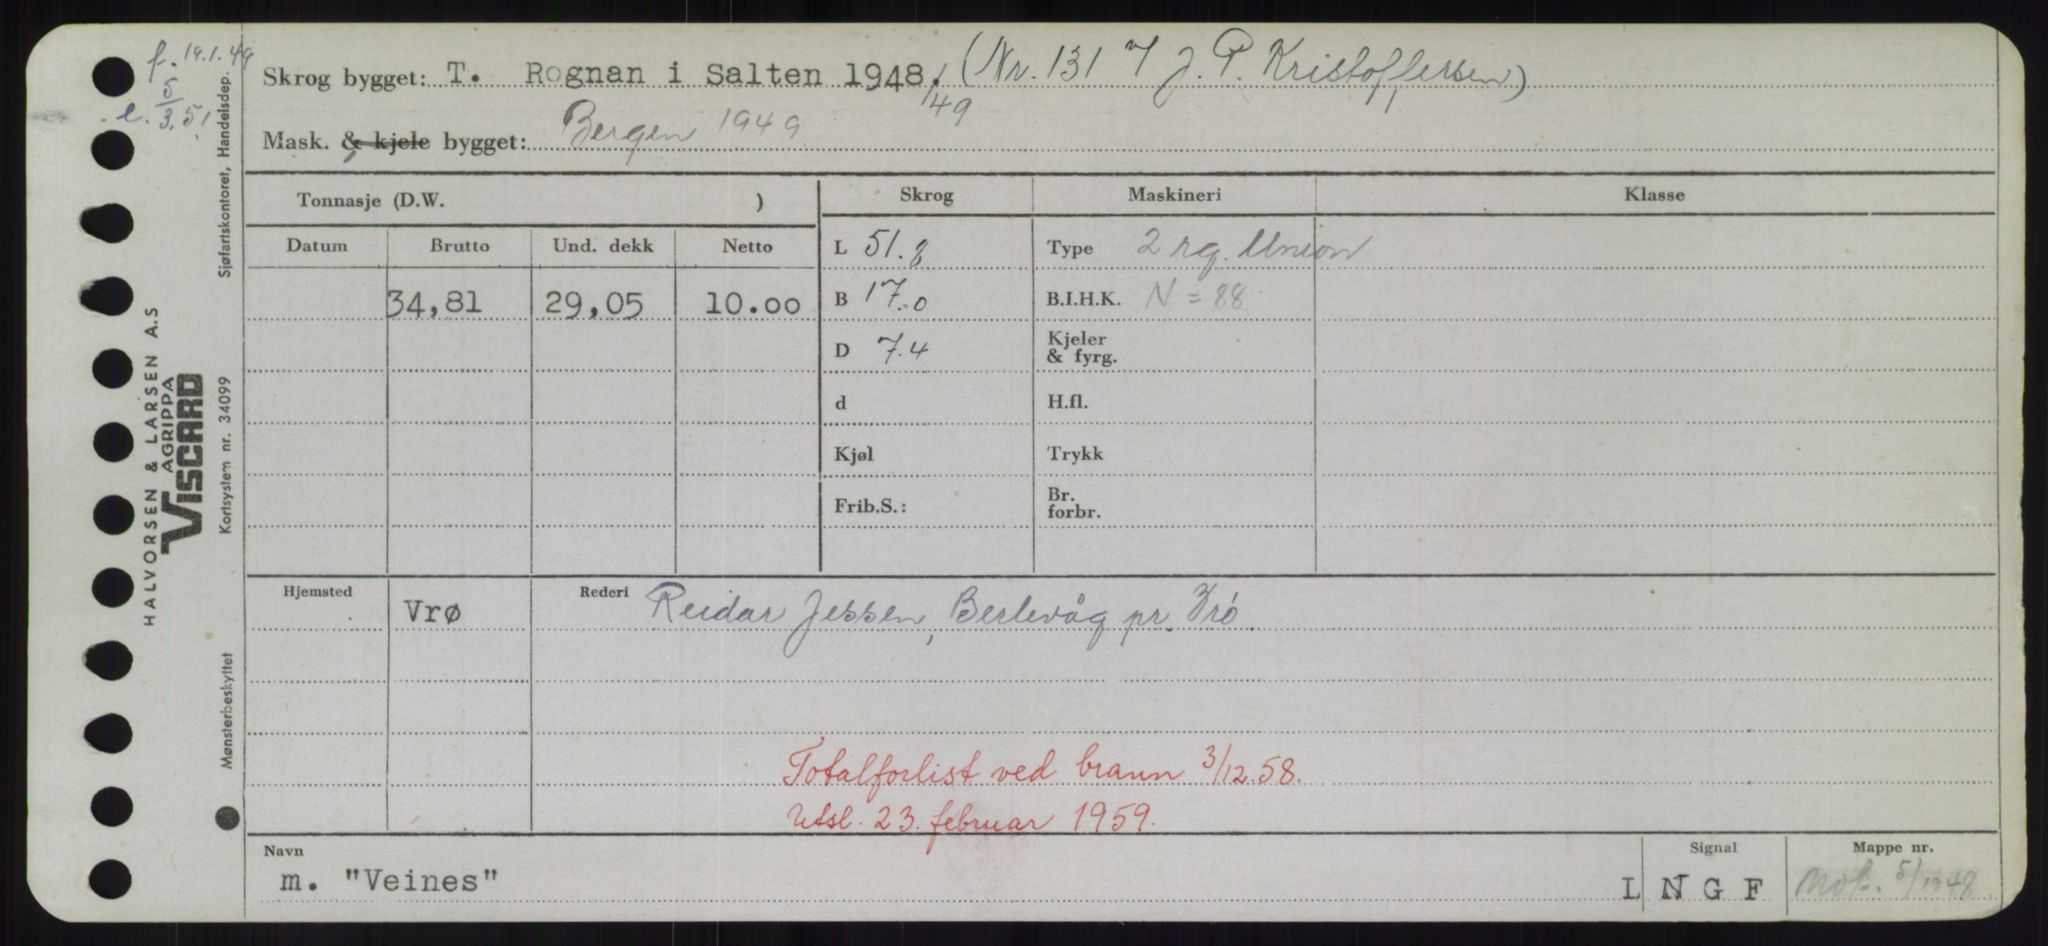 f. 19.1.49
e. 5/3.51
Skrog bygget: T. Rognan i Salten 1948./49 (Nr. 131 J. P. Kristoffersen)
Mask. & kjele bygget: Bergen 1949
Tonnasje (D.W. )
Skrog Maskineri Klasse
Datum Brutto Und. dekk Netto
34,81 29,05 10.00
L 51.8
B 17.0
D 7.4
d
Kjøl
Frib.S.:
Type 2 rg. Union
B.I.H.K. N = 88
Kjeler
& fyrg.
H.fl.
Trykk
Br.
forbr.
Hjemsted Vrø
Rederi Reidar Jessen, Berlevåg pr. Vrø.
Totalforlist ved brann 3/12.58.
Utsl. 23. februar 1959.
Navn Signal Mappe nr.
m. "Veines" L N G F 5/1948
HALVORSEN & LARSEN A.S
AGRIPPA
VISCARD
Sjøfartskontoret, Handelsdep.
Kortsystem nr. 34099
Mønsterbeskyttet